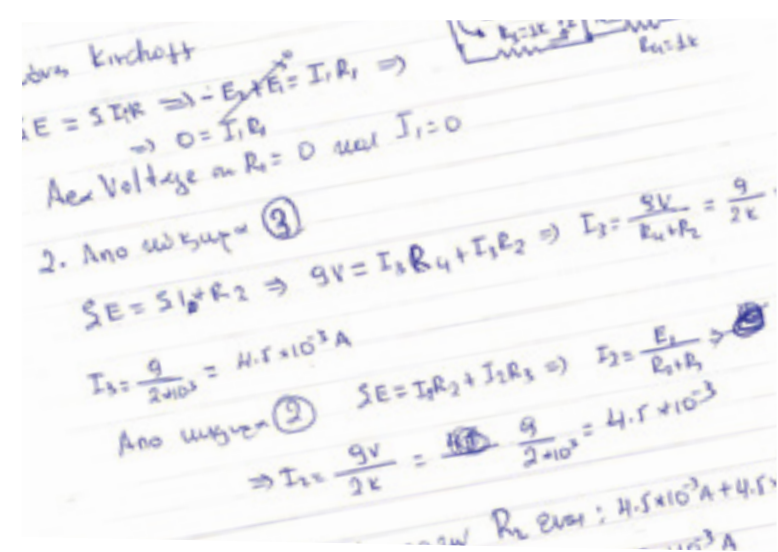 Kirchoff
R₁=1k
R₄=1k
ΣE = ΣI₁R ⇒ -E₂+E₁⁰ = I₁R₁ ⇒
⇒ 0 = I₁R₁
Αρα Voltage on R₁ = 0 και I₁=0
2. Απο κύκλωμα ③
ΣE = ΣI₀*R₂ ⇒ 9V = I₃R₄+I₃R₂ ⇒ I₃ = 9V/(R₄+R₂) = 9/2k
I₃ = 9/(2*10³) = 4.5*10⁻³A
Απο κύκλωμα ② ΣE = I₂R₂+I₂R₃ ⇒ I₂ = E₂/(R₂+R₃) ⇒
⇒ I₂ = 9V/2k = 9/(2*10³) = 4.5*10⁻³
R₂ ειναι: 4.5*10⁻³A+4.5*
10⁻³A